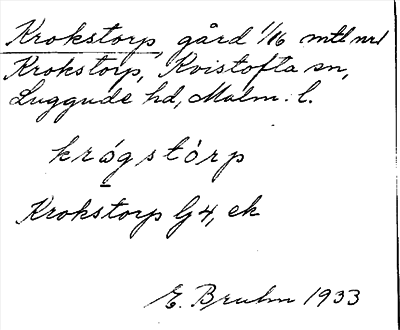 Krokstorp, gård 1/16 mtl nr 1
Krokstorp, Kvistofta sn,
Luggude hd, Malm. l.
krǫ́gstòrp
Krokstorp lj 4, ek
E. Bruhn 1933